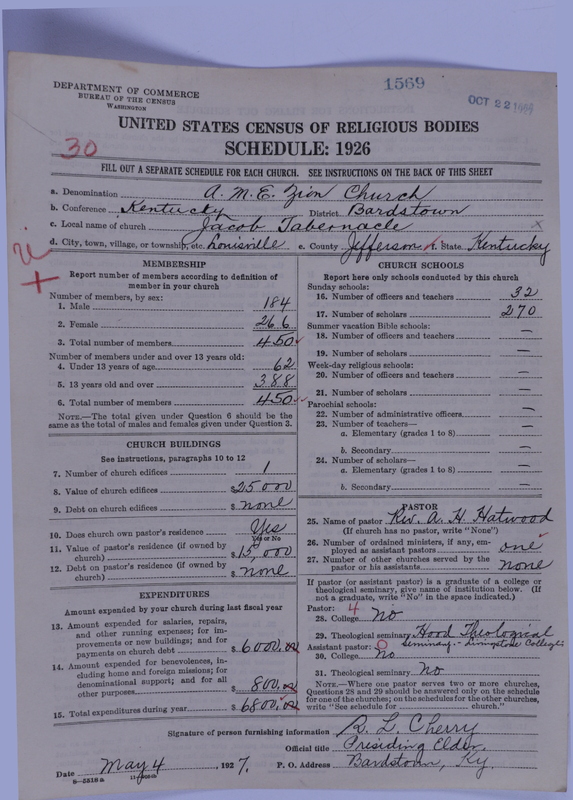 1569
DEPARTMENT OF COMMERCE
BUREAU OF THE CENSUS
WASHINGTON
OCT 22
UNITED STATES CENSUS OF RELIGIOUS BODIES
30
SCHEDULE: 1926
FILL OUT A SEPARATE SCHEDULE FOR EACH CHURCH. SEE INSTRUCTIONS ON THE BACK OF THIS SHEET
a. Denomination A. M. E. Zion Church
b. Conference Kentucky District Bardstown
c. Local name of church Jacob Tabernacle x
d. City, town, village, or township, etc. Louisville e. County Jefferson f. State Kentucky
MEMBERSHIP
Report number of members according to definition of
member in your church
Number of members, by sex:
1. Male 184
2. Female 266
3. Total number of members 450
Number of members under and over 13 years old:
4. Under 13 years of age 62
5. 13 years old and over 388
6. Total number of members 450
NOTE.—The total given under Question 6 should be
same as the total of males and females given under Question 3.
CHURCH BUILDINGS
See instructions, paragraphs 10 to 12
7. Number of church edifices 1
8. Value of church edifices $25000
9. Debt on church edifices $ none
10. Does church own pastor's residence? Yes
Yes or No
11. Value of pastor's residence (if owned by
church) $15,000
12. Debt on pastor's residence (if owned by
church) $ none
EXPENDITURES
Amount expended by your church during last fiscal year
13. Amount expended for salaries, repairs,
and other running expenses; for im-
provements or new buildings; and for
payments on church debt $6000.00
14. Amount expended for benevolences, in-
cluding home and foreign missions; for
denominational support; and for all
other purposes $ 800.00
15. Total expenditures during year $6800.00
CHURCH SCHOOLS
Report here only schools conducted by this church
Sunday schools:
16. Number of officers and teachers 32
17. Number of scholars 270
Summer vacation Bible schools:
18. Number of officers and teachers —
19. Number of scholars —
Week-day religious schools:
20. Number of officers and teachers —
21. Number of scholars —
Parochial schools:
22. Number of administrative officers —
23. Number of teachers—
a. Elementary (grades 1 to 8) —
b. Secondary —
24. Number of scholars—
a. Elementary (grades 1 to 8) —
b. Secondary —
PASTOR
25. Name of pastor Rev. A. H. Hatwood
(If church has no pastor, write "None")
26. Number of ordained ministers, if any, em-
ployed as assistant pastors one
27. Number of other churches served by the
pastor or his assistants none
If pastor (or assistant pastor) is a graduate of a college or
theological seminary, give name of institution below. (If
not a graduate, write "No" in the space indicated.)
Pastor: 4
28. College No
29. Theological seminary Hood Theological
Seminary.- Livingstone College
Assistant pastor: 0
30. College No
31. Theological seminary No
NOTE.—Where one pastor serves two or more churches,
Questions 28 and 29 should be answered only on the schedule
for one of the churches; on the schedules for the other churches,
write "See schedule for church."
Signature of person furnishing information R. L. Cherry
Official title Presiding Elder
Date May 4, 1927. P. O. Address Bardstown, Ky.